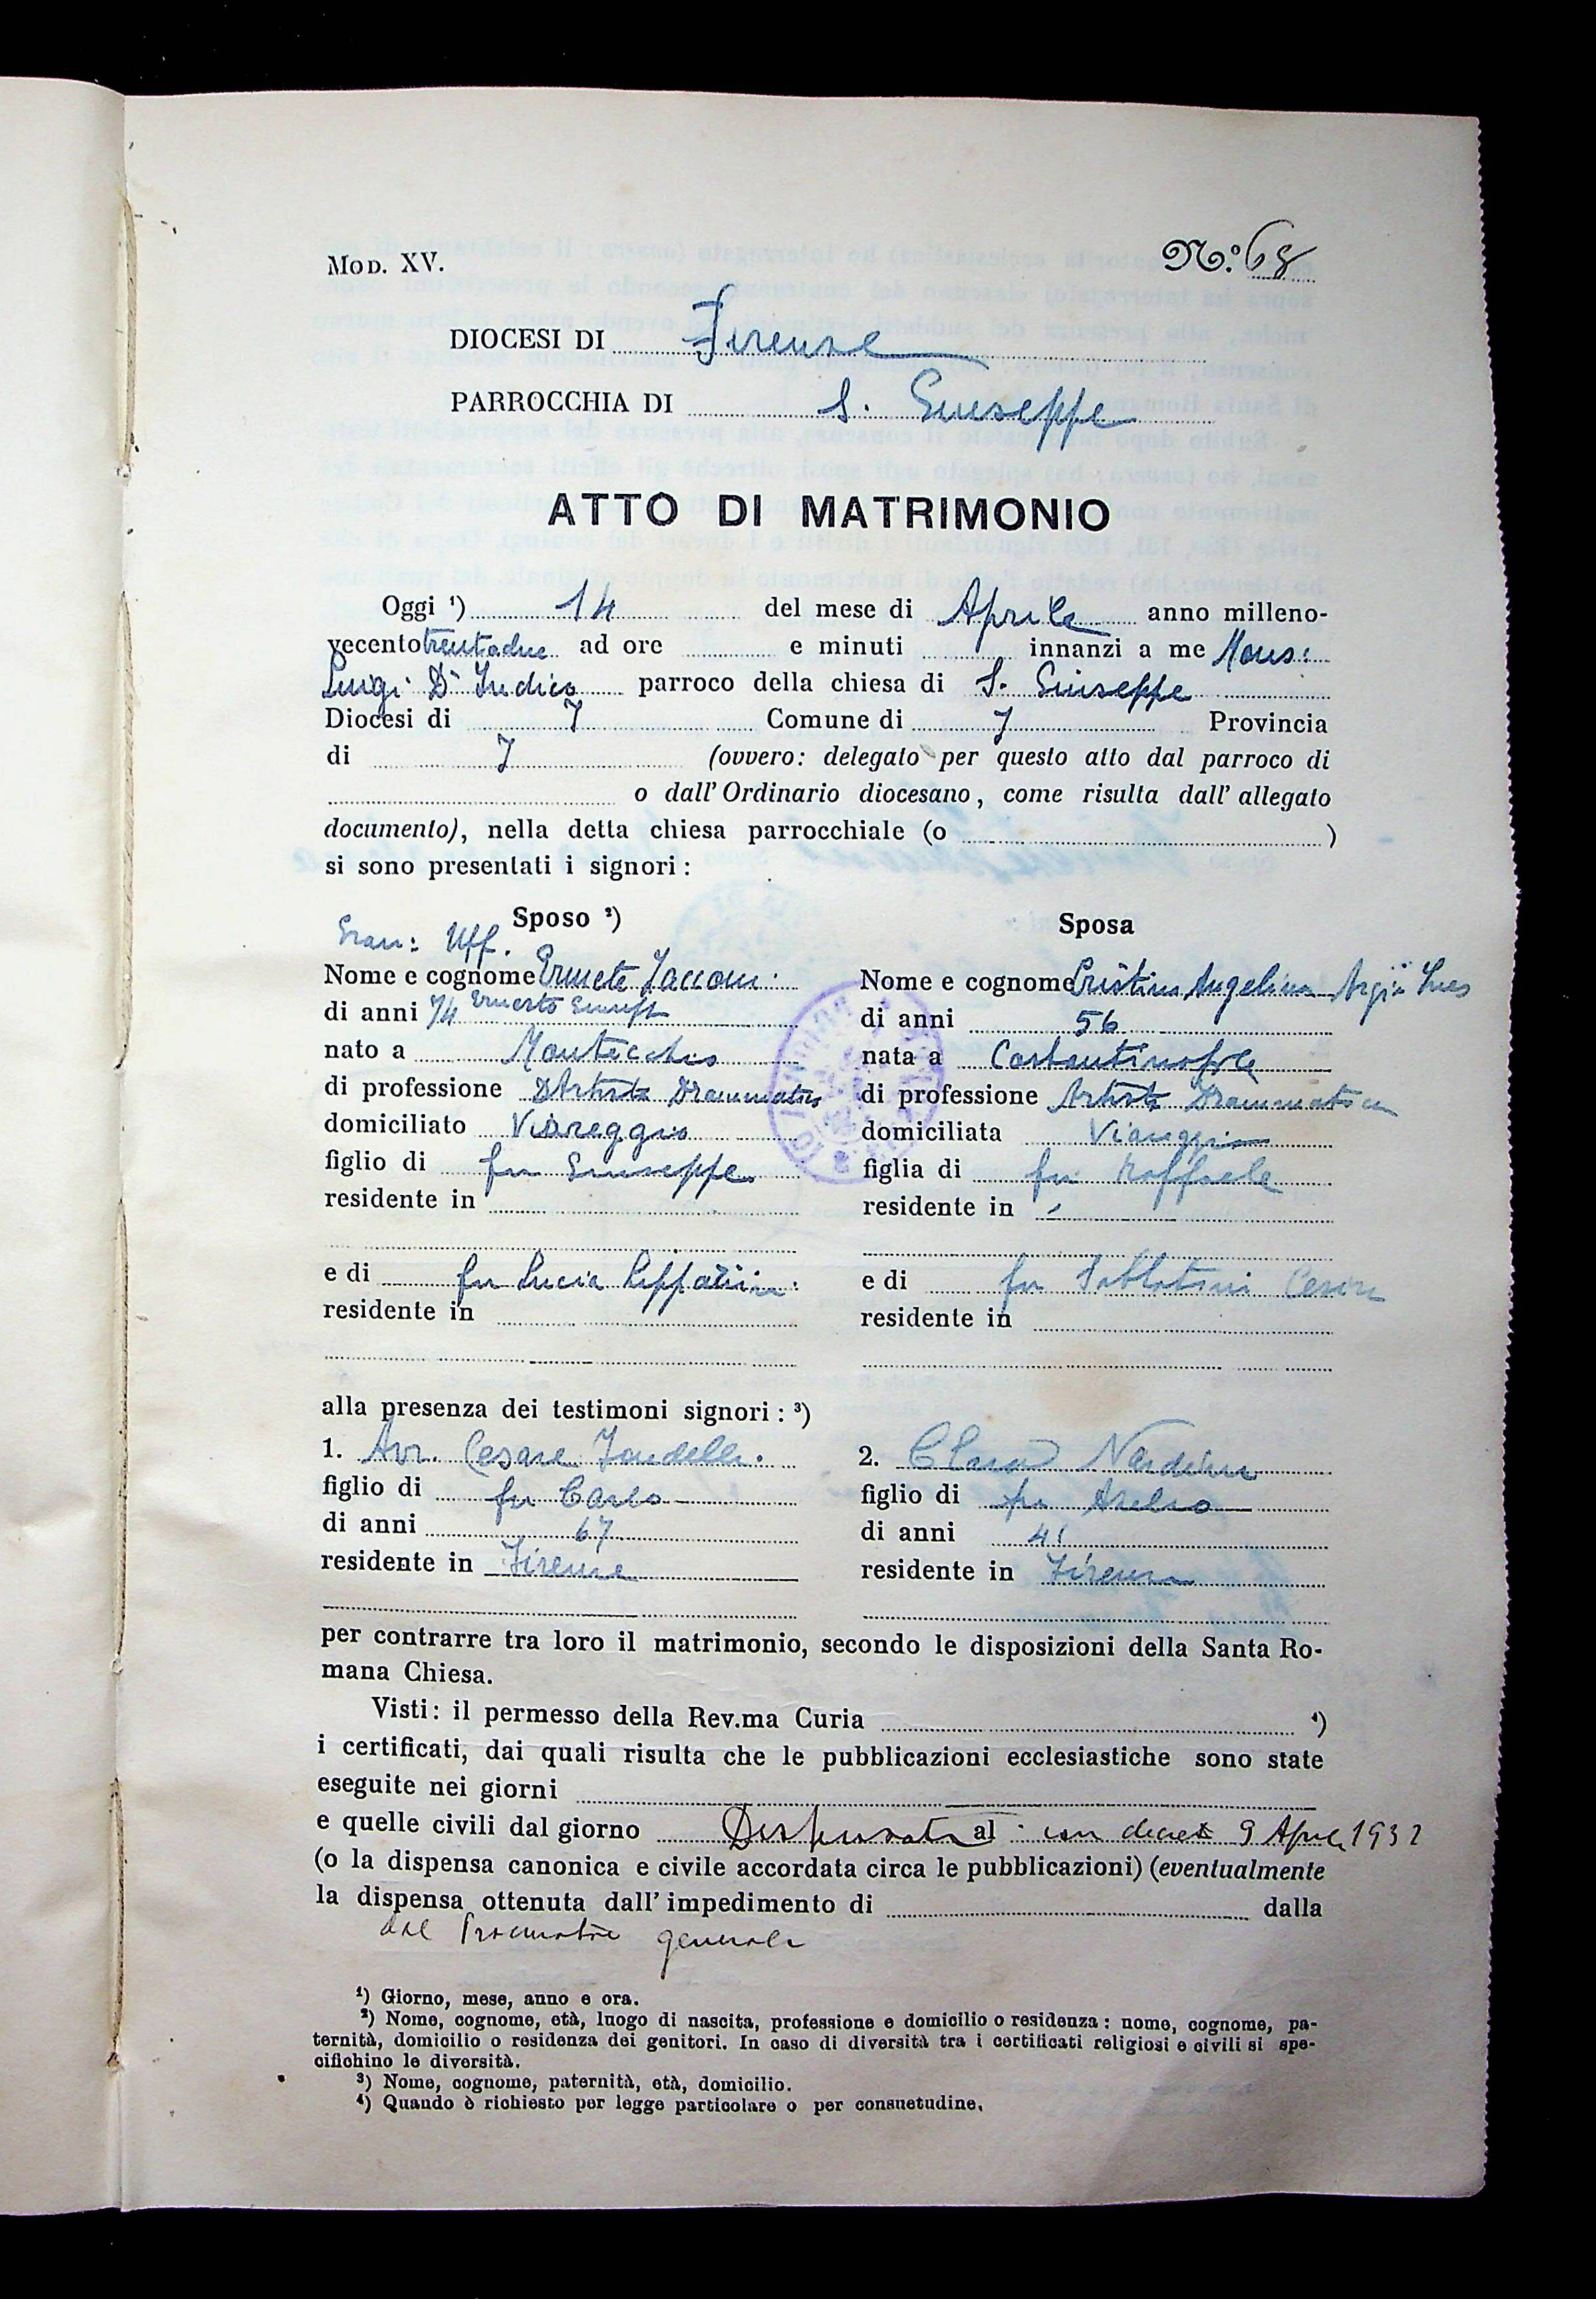 Mod. XV.
N.º 68
DIOCESI DI Firenze
PARROCCHIA DI S. Giuseppe
ATTO DI MATRIMONIO
Oggi ¹) 14 del mese di Aprile anno milleno-
vecento trentadue ad ore e minuti innanzi a me Mons:
Luigi D'Indico parroco della chiesa di S. Giuseppe
Diocesi di F Comune di F Provincia
di F (ovvero: delegato per questo atto dal parroco di
o dall' Ordinario diocesano, come risulta dall' allegato
documento), nella detta chiesa parrocchiale (o )
si sono presentati i signori:
Sposo ²)
Gran: Uff.
Nome e cognome Ermete Zacconi
di anni 74 Ernesto Giuseppe
nato a Montecchio
di professione Artista Drammatico
domiciliato Viareggio
figlio di fu Giuseppe
residente in
e di fu Lucia
residente in
Sposa
Nome e cognome Cristina Angelina Argia Ines
di anni 56
nata a Costantinopole
di professione Artista Drammatica
domiciliata Viareggio
figlia di fu Raffaele
residente in
e di fu Cesira
residente in
alla presenza dei testimoni signori: ³)
1. Avv. Cesare
figlio di fu Carlo
di anni 67
residente in Firenze
2. Nardini
figlio di fu
di anni 41
residente in Firenze
per contrarre tra loro il matrimonio, secondo le disposizioni della Santa Ro-
mana Chiesa.
Visti: il permesso della Rev.ma Curia ⁴)
i certificati, dai quali risulta che le pubblicazioni ecclesiastiche sono state
eseguite nei giorni
e quelle civili dal giorno Dispensati al con decreto 9 Aprile 1932
(o la dispensa canonica e civile accordata circa le pubblicazioni) (eventualmente
la dispensa ottenuta dall' impedimento di dalla
dal Procuratore generale
¹) Giorno, mese, anno e ora.
²) Nome, cognome, età, luogo di nascita, professione e domicilio o residenza: nome, cognome, pa-
ternità, domicilio o residenza dei genitori. In caso di diversità tra i certificati religiosi e civili si spe-
cifichino le diversità.
³) Nome, cognome, paternità, età, domicilio.
⁴) Quando è richiesto per legge particolare o per consuetudine.